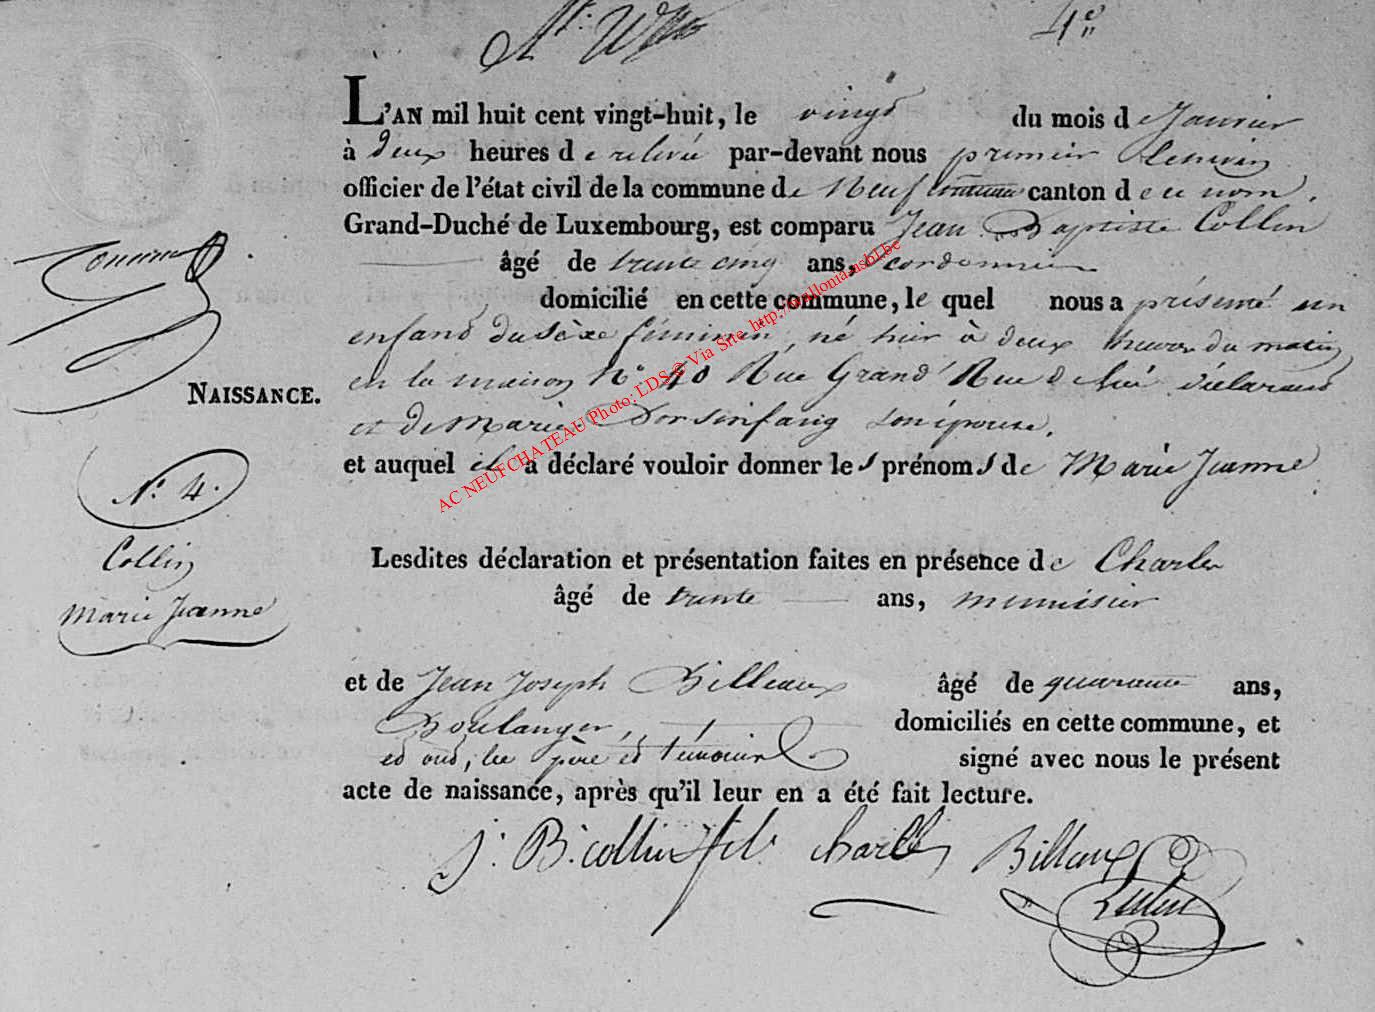 4e
L'AN mil huit cent vingt-huit, le vingt du mois de Janvier
à deux heures de relevée par-devant nous premier Echevin
officier de l'état civil de la commune de Neufchateau canton de ce nom,
Grand-Duché de Luxembourg, est comparu Jean Baptiste Collin
âgé de trente cinq ans, cordonnier
domicilié en cette commune, le quel nous a présenté un
enfant du sèxe féminin, né hier à deux heures du matin
en la maison N° 40 Rue Grand' Rue de lui déclarant
et de Marie Dorsinfang son épouse.
NAISSANCE.
et auquel il a déclaré vouloir donner les prénoms de Marie Jeanne
N°. 4.
Collin
Marie Jeanne
Lesdites déclaration et présentation faites en présence de Charles
âgé de trente ans, menuisier
et de Jean Joseph Billeaux âgé de quarante ans,
Boulanger, domiciliés en cette commune, et
et ont, les père et témoins signé avec nous le présent
acte de naissance, après qu'il leur en a été fait lecture.
J. B. Collin Charles Billaux
AC NEUFCHATEAU Photo: LDS @ Via Site http://wallonia.usbl.be